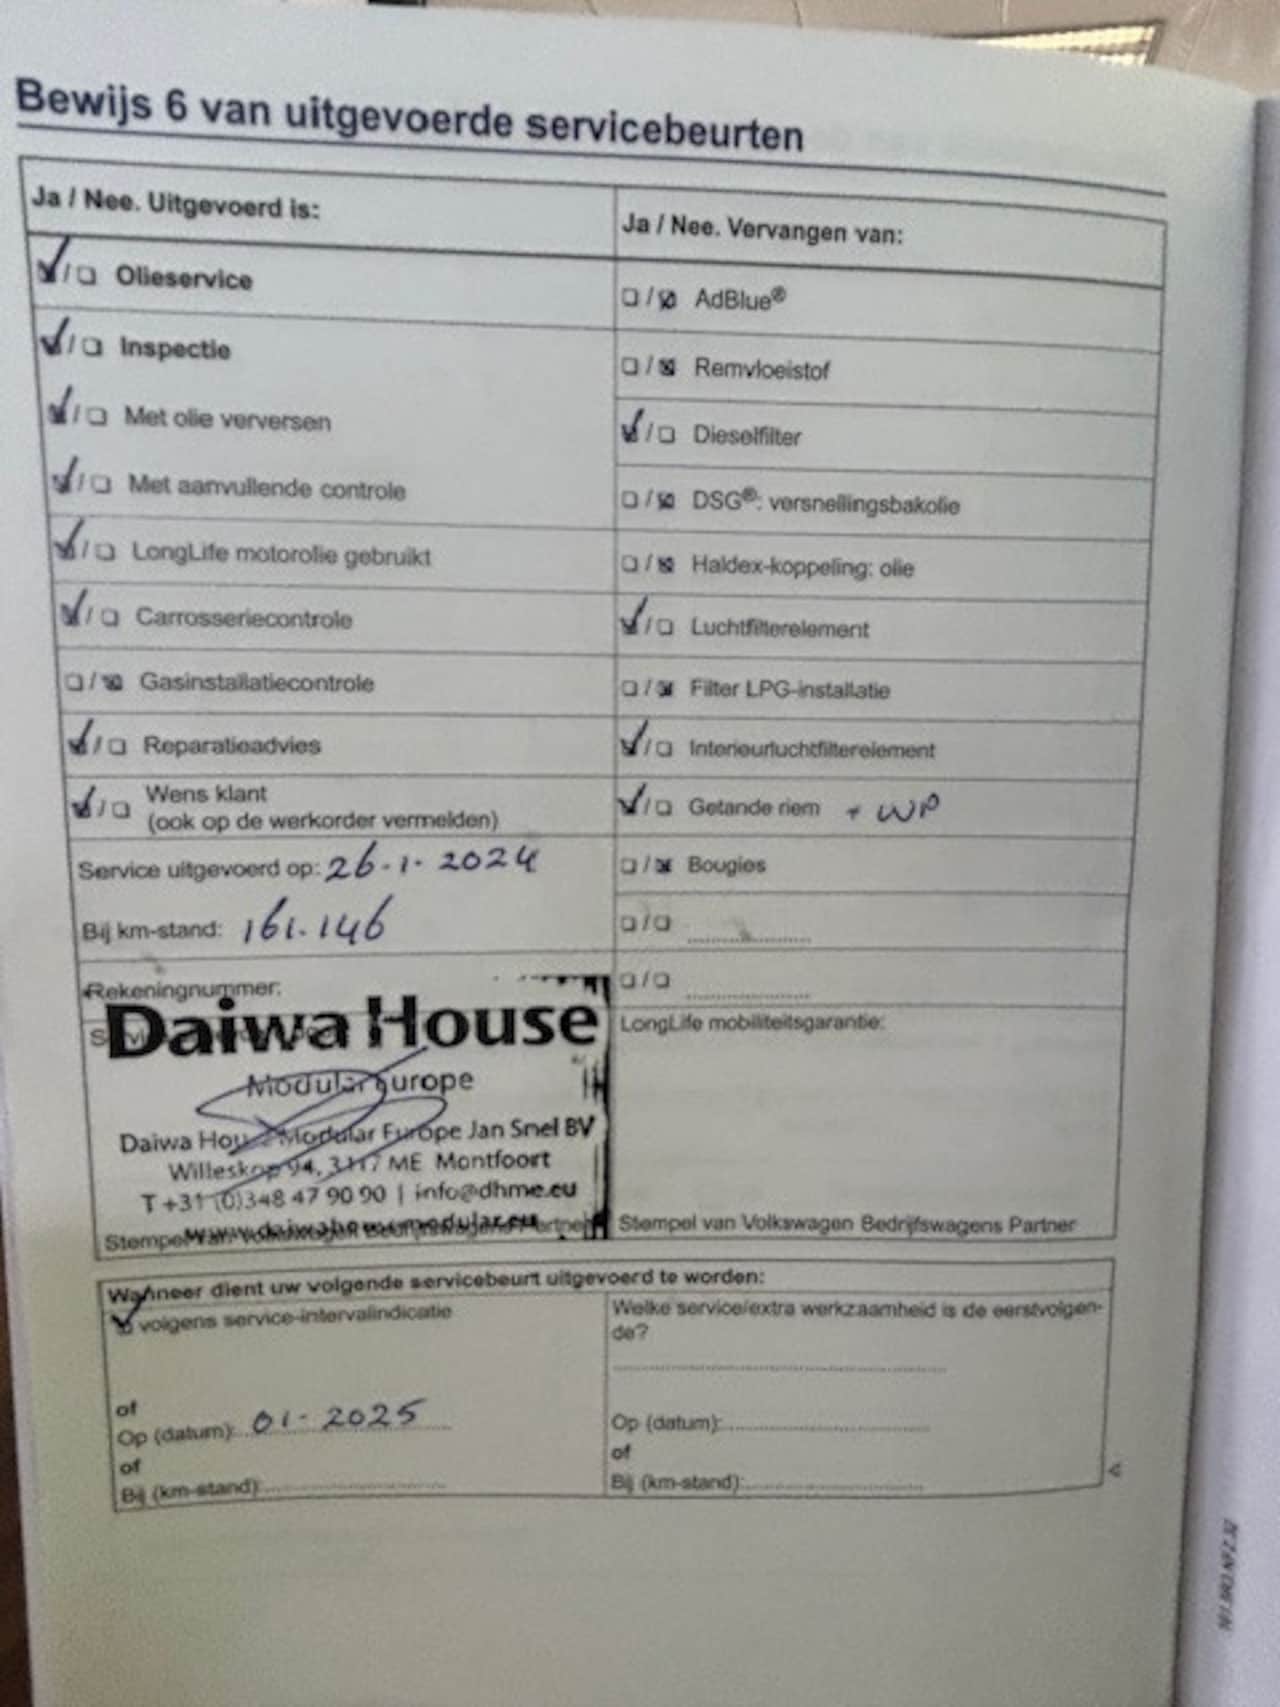 Bewijs 6 van uitgevoerde servicebeurten
Ja / Nee. Uitgevoerd is:
Olieservice
Inspectie
Met olie verversen
Met aanvullende controle
LongLife motorolie gebruikt
Carrosseriecontrole
Gasinstallatiecontrole
Reparatieadvies
Wens klant
(ook op de werkorder vermelden)
Service uitgevoerd op: 26-1-2024
Bij km-stand: 161.146
Rekeningnummer:
Daiwa House
Modular Europe
Daiwa House Modular Europe Jan Snel BV
Willeskop 94, 3417 ME Montfoort
T +31 (0)348 47 90 90 | info@dhme.eu
www.daiwahousemodular.eu
Stempel van Volkswagen Bedrijfswagens Partner
Ja / Nee. Vervangen van:
AdBlue®
Remvloeistof
Dieselfilter
DSG®: versnellingsbakolie
Haldex-koppeling: olie
Luchtfilterelement
Filter LPG-installatie
Interieurluchtfilterelement
Getande riem + WP
Bougies
LongLife mobiliteitsgarantie:
Stempel van Volkswagen Bedrijfswagens Partner
Wanneer dient uw volgende servicebeurt uitgevoerd te worden:
volgens service-intervalindicatie
of
Op (datum): 01-2025
of
Bij (km-stand):
Welke service/extra werkzaamheid is de eerstvolgen-
de?
Op (datum):
of
Bij (km-stand):